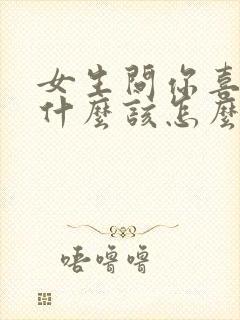 女生問你喜
什麼該怎麼
唔嚕嚕